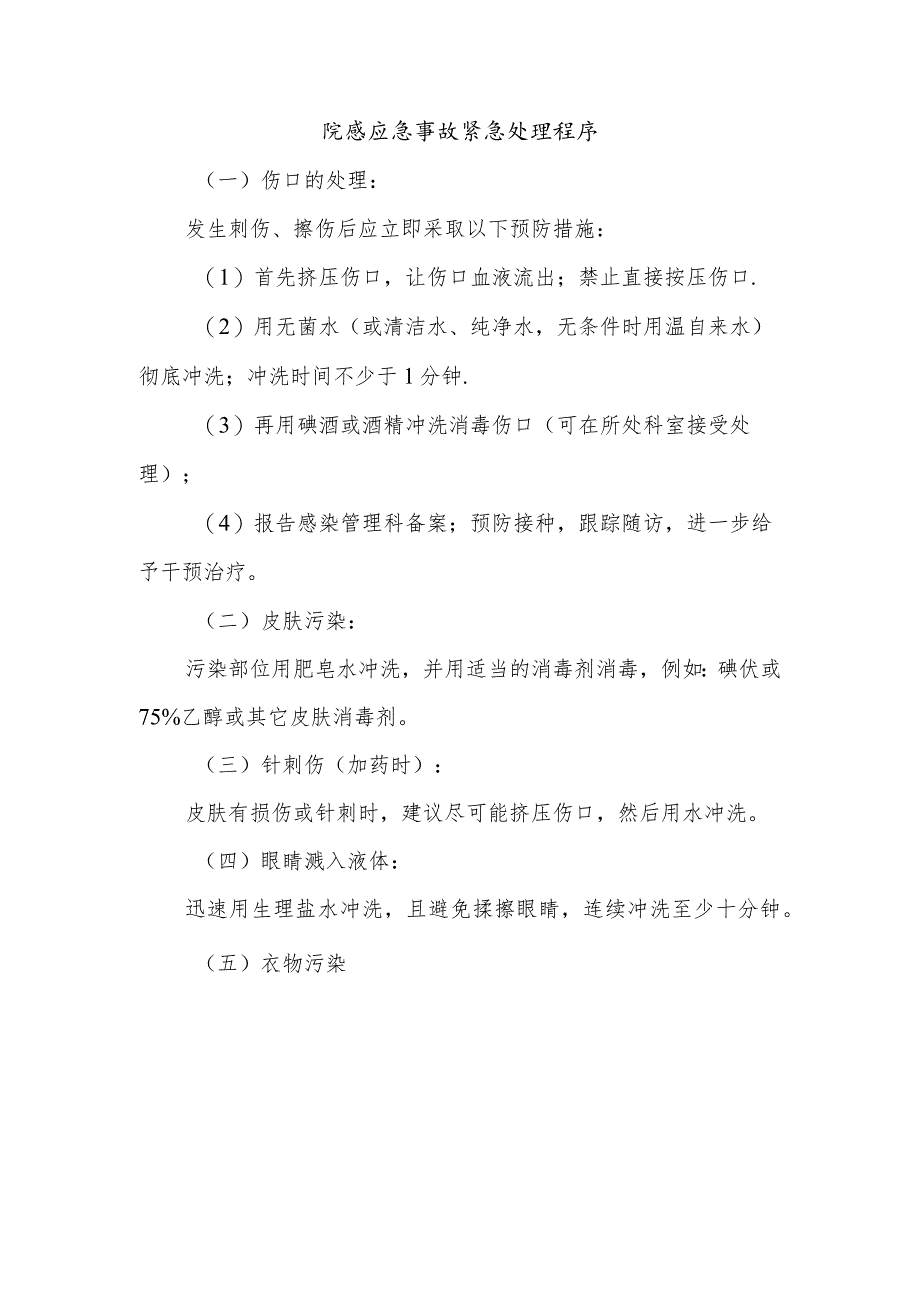 院感应急事故紧急处理程序
（一）伤口的处理：
发生刺伤、擦伤后应立即采取以下预防措施：
（1）首先挤压伤口，让伤口血液流出；禁止直接按压伤口.
（2）用无菌水（或清洁水、纯净水，无条件时用温自来水）
彻底冲洗；冲洗时间不少于1分钟.
（3）再用碘酒或酒精冲洗消毒伤口（可在所处科室接受处
理）；
（4）报告感染管理科备案；预防接种，跟踪随访，进一步给
予干预治疗。
（二）皮肤污染：
污染部位用肥皂水冲洗，并用适当的消毒剂消毒，例如：碘伏或
75%乙醇或其它皮肤消毒剂。
（三）针刺伤（加药时）：
皮肤有损伤或针刺时，建议尽可能挤压伤口，然后用水冲洗。
（四）眼睛溅入液体：
迅速用生理盐水冲洗，且避免揉擦眼睛，连续冲洗至少十分钟。
（五）衣物污染